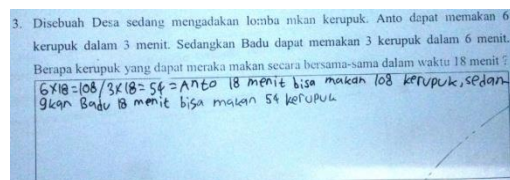 3. Disebuah Desa sedang mengadakan lomba mkan kerupuk. Anto dapat memakan 6
kerupuk dalam 3 menit. Sedangkan Badu dapat memakan 3 kerupuk dalam 6 menit.
Berapa kerupuk yang dapat meraka makan secara bersama-sama dalam waktu 18 menit ?
6x18=108/3x18=54=Anto 18 menit bisa makan 108 kerupuk,sedan
gkan Badu 18 menit bisa makan 54 kerupuk